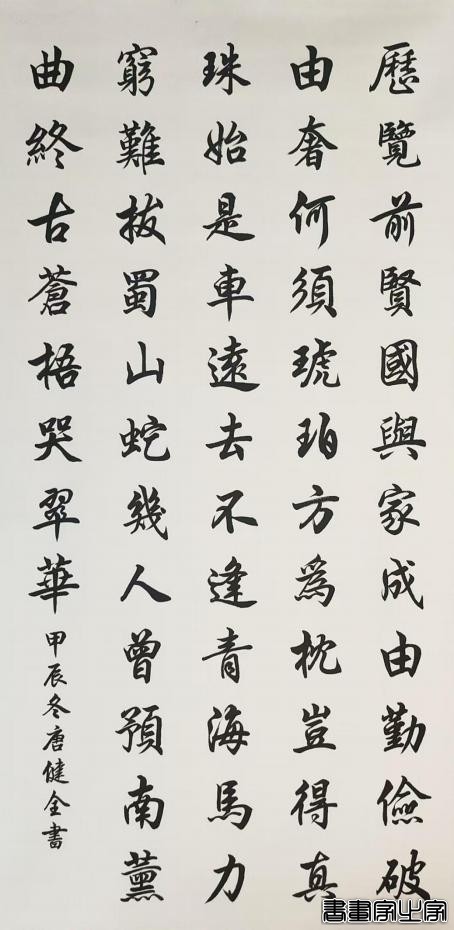 歷覽前賢國與家成由勤儉破
由奢何須琥珀方爲枕豈得真
珠始是車遠去不逢青海馬力
窮難拔蜀山蛇幾人曾預南薰
曲終古蒼梧哭翠華
甲辰冬唐健全書